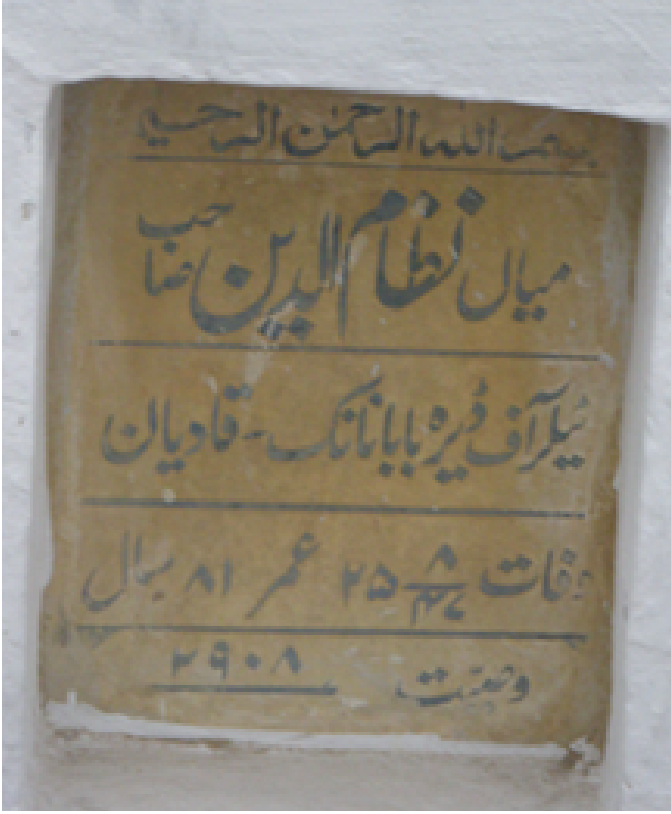 بسم اللہ الرحمٰن الرحیم
میاں نظام الدین صاحب
ٹیلر آف ڈیرہ بابا نانک۔ قادیان
وفات ۸/۴۷ ۲۵ عمر ۸۱ سال
وصیت ۲۹۰۸